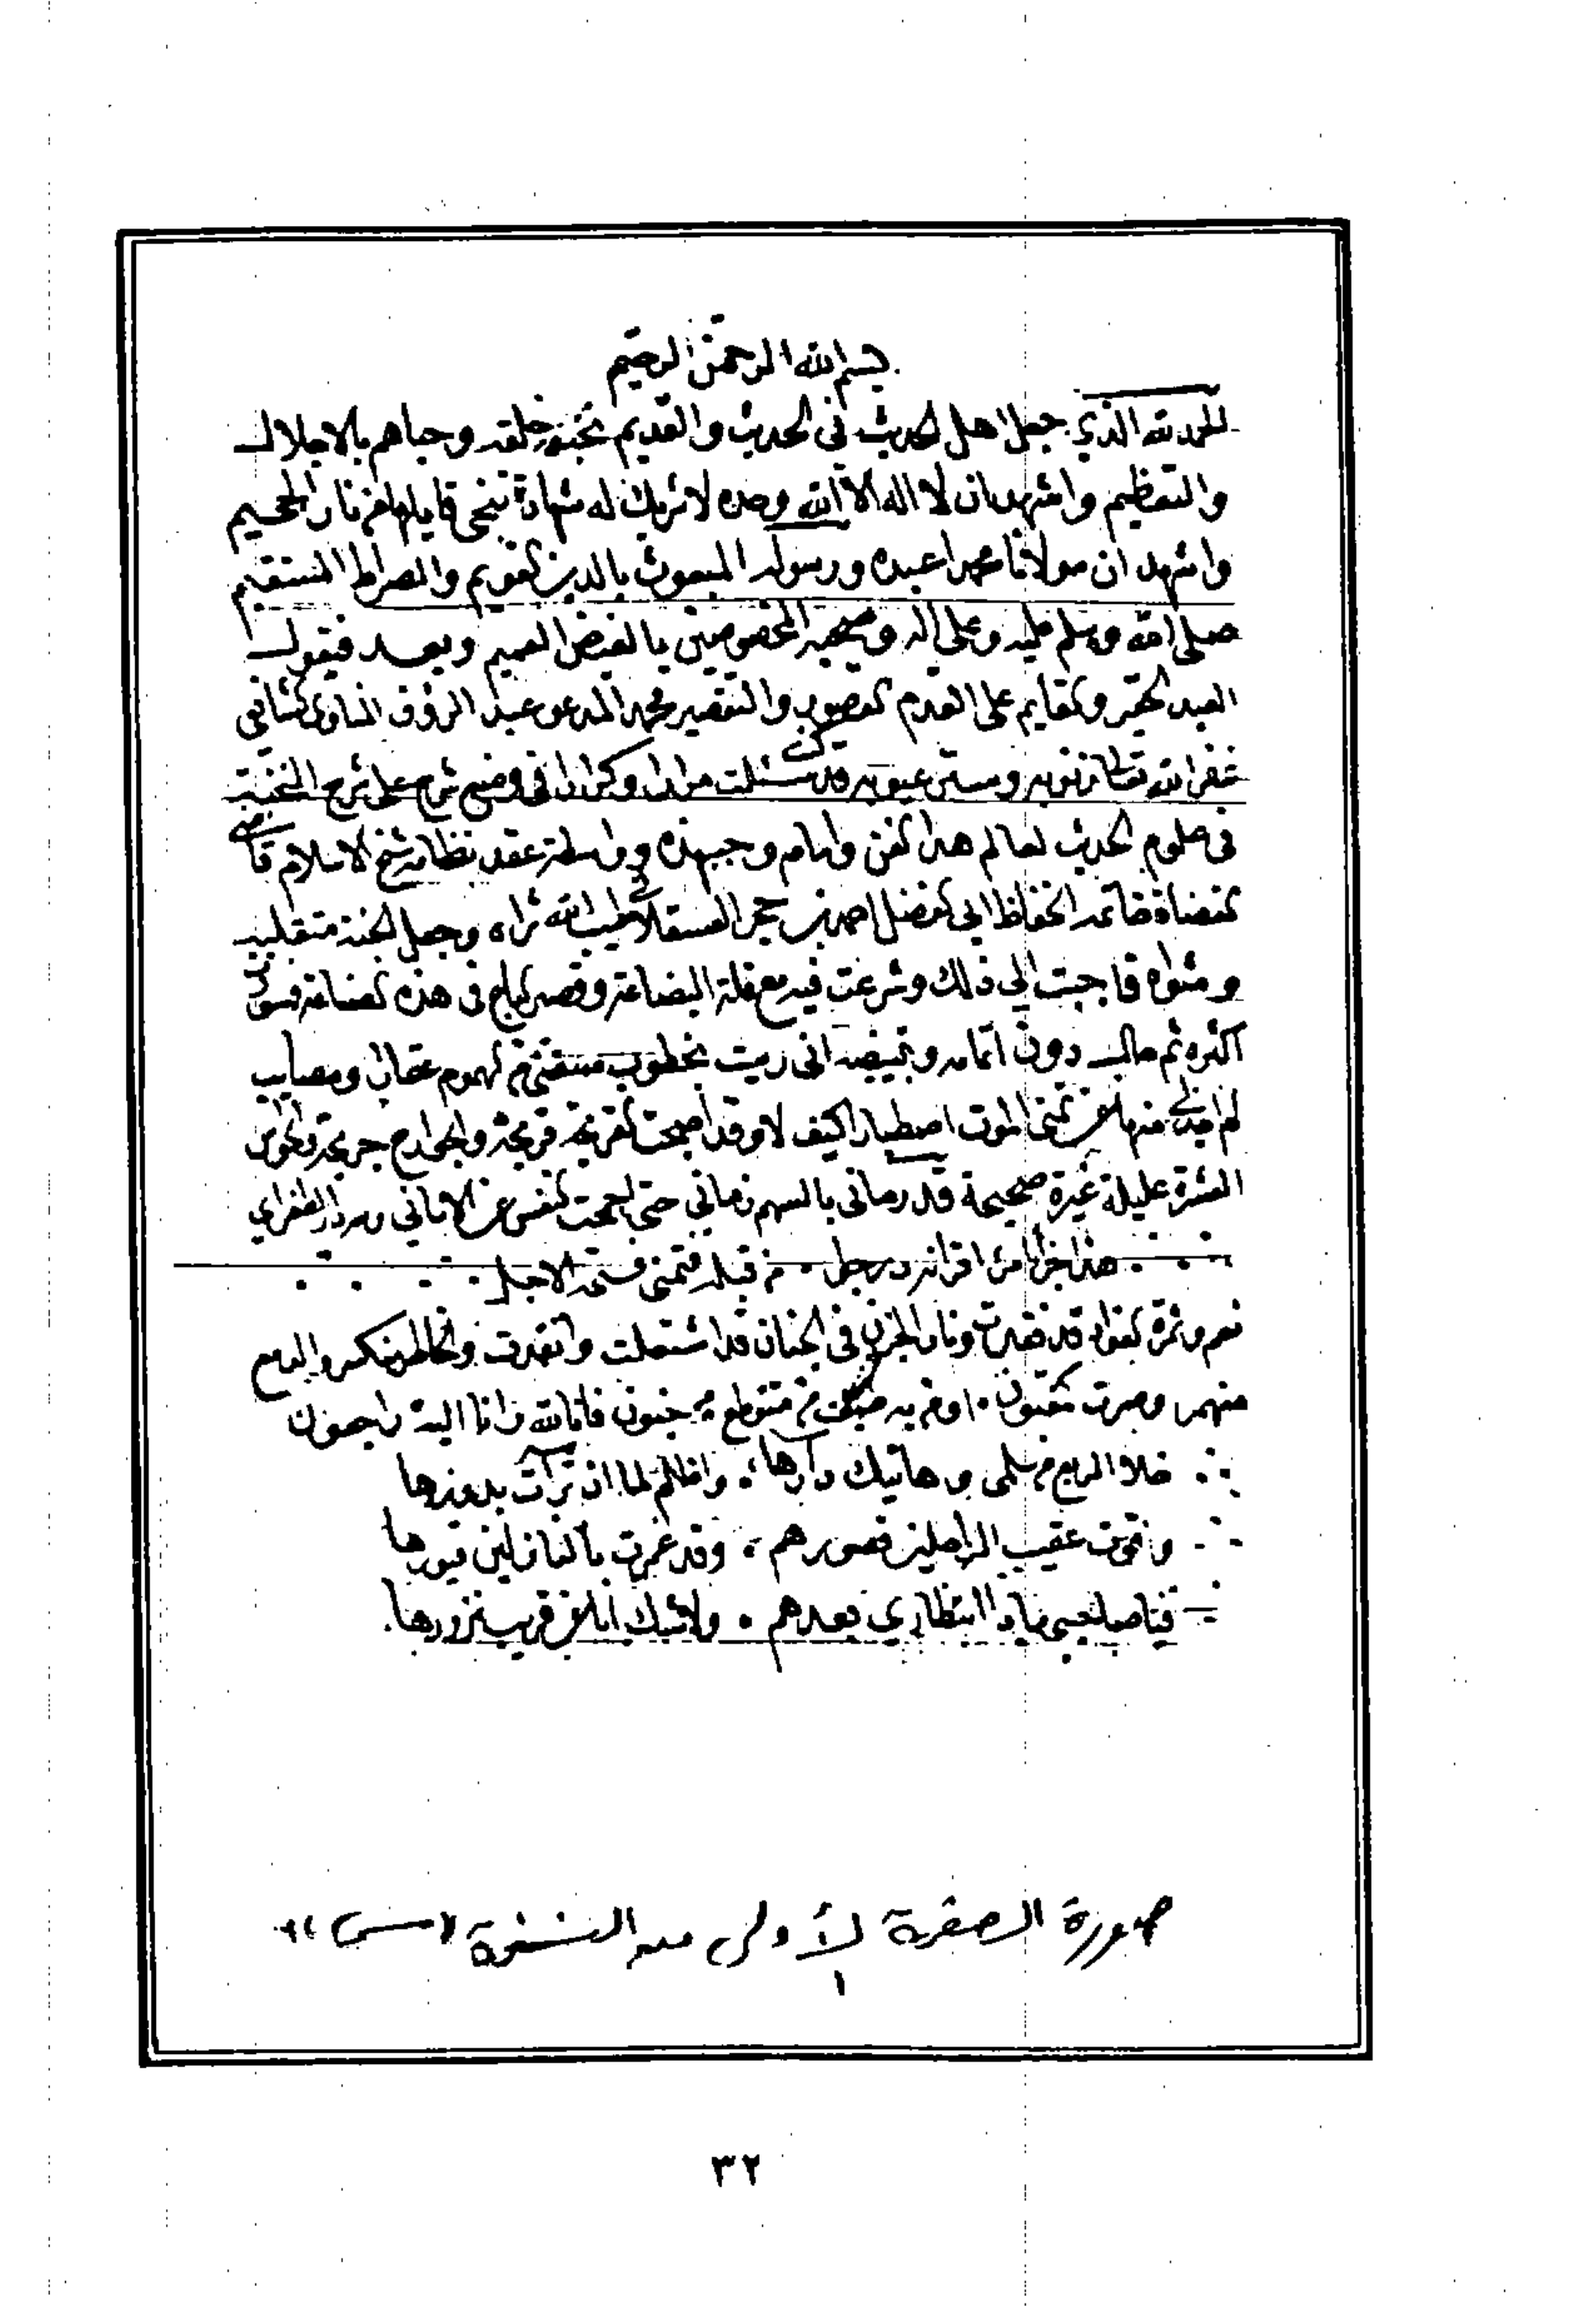 بسم الله الرحمن الرحيم
الحمد لله الذي جعل اهل الحديث في الحديث والقديم نخبة خلقه وحباهم بالاجلال
والتعظيم واشهد ان لا اله الا الله وحده لا شريك له شهادة تنجي قايلها من نار الجحيم
واشهد ان مولانا محمدا عبده ورسوله المبعوث بالدين القويم والصراط المستقيم
صلى الله وسلم عليه وعلى اله وصحبه المخصوصين بالفيض العميم وبعد فيقول
العبد الحقير والقايم على القدم القصور والتقصير محمد المدعو عبد الروف المناوي الشافعي
غفر الله تعالى ذنوبه وستر عيوبه قد سئلت مرارا وكرارا في وضع شرح على شرح النخبة
في علوم الحديث لعالم هذا الفن وامامه وجهبذه وواسطة عقد نظامه شيخ الاسلام قاضي
القضاة خاتمة الحفاظ ابي الفضل احمد بن حجر العسقلاني طيب الله ثراه وجعل الجنة متقلبه
ومثواه فاجبت الي ذلك وشرعت فيه مع قلة البضاعة وقصر الباع في هذه الصناعة
اكثره ثم حال دون اتمامه وتبييضه اني رميت بخطوب الهموم ومصايب
لم اجد منها عن تمني الموت اصطبارا كيف لا وقد اصبحت القريحة قريحة والجوارح جريحة والحواس
العشرة عليلة غيرة صحيحة قد رماني بالسهم زماني حتى جمحت النفس عن الاماني
هذا جزا من اقرانه درجوا . من قبله فتمنى فسحة الاجل
نعم وثمرة الفواد قد فقدت ونار الحزن في الجنان قد اشتعلت واتقدت والخاطر منكسر والدمع
منهمر وصرت فانا لله وانا اليه راجعون
خلا الربع من سلمى وهاتيك دارها ؛ واظلم لما ان بدورها
عقيب الراحلين قصورهم ؛ وقد عمرت بالنازلين قبورها
فيا صاحبي ماذا انتظاري بعدهم . ولا شك انا عن قريب نزورها
صورة الصفحة الأولى من النسخة (س)
١
٣٢